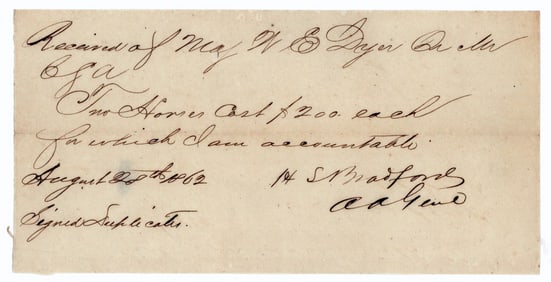 Received of Maj W E Dyer Qr Mr
C S A
Two Horses Cost $200 each
for which I am accountable
August 28th 1862 H S Bradford
Signed Duplicates. A A Genl